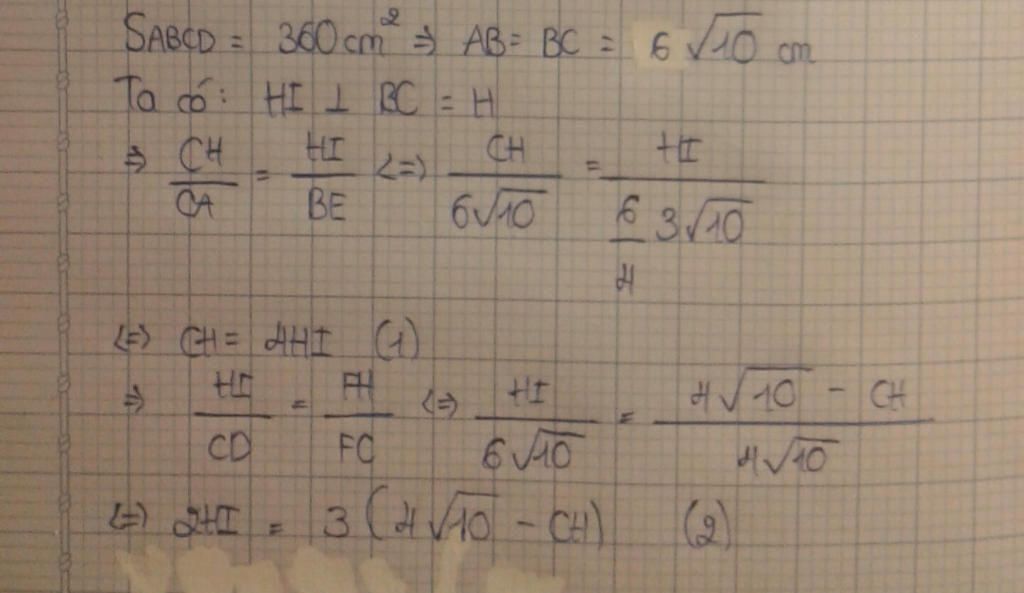 SABCD = 360cm² => AB = BC = 6√10 cm
Ta có: HI ⊥ BC = H
=> CH/CA = HI/BE <=> CH/6√10 = HI/(6/4 3√10)
<=> CH = 4HI (1)
=> HI/CD = FH/FC <=> HI/6√10 = (4√10 - CH)/4√10
<=> 2HI = 3(4√10 - CH) (2)